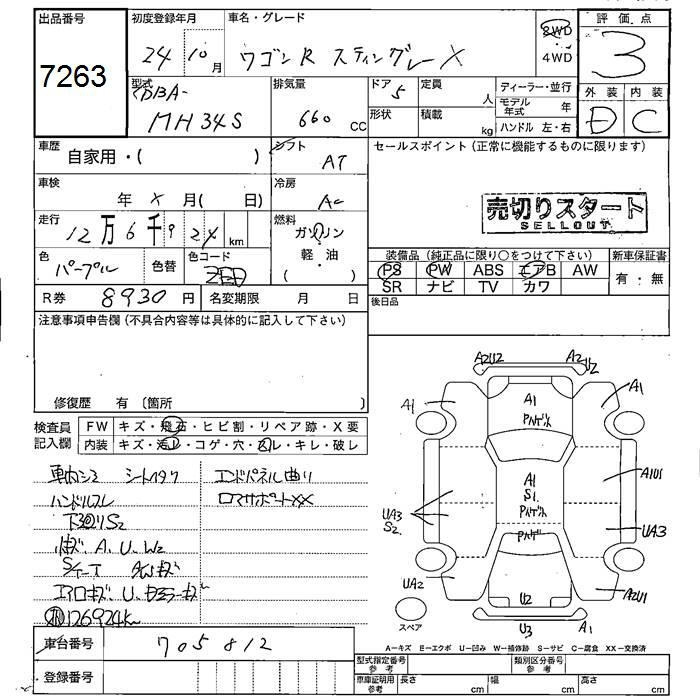 出品番号
7263
初度登録年月
24 10 月
車名・グレード
ワゴンR スティングレーX
2WD
4WD
評価点
3
外装 内装
D C
型式
CDBA-
MH34S
排気量
660 CC
ドア 5
形状
定員
人
積載
kg
ディーラー・並行
モデル年式 年
ハンドル 左・右
車歴
自家用・( )
シフト
AT
セールスポイント(正常に機能するものに限ります)
売切りスタート
SELLOUT
車検
年 X 月( 日)
冷房
AC
走行
12万6千924 km
燃料
ガソリン
軽・油
( )
色
パープル
色替
色コード
ZED
装備品(純正品に限り○をつけて下さい)
PS PW ABS エアB AW
SR ナビ TV カワ
新車保証書
有・無
R券 8930 円
名変期限 月 日
後日品
注意事項申告欄(不具合内容等は具体的に記入して下さい)
修復歴 有〔箇所 〕
検査員
記入欄
FW キズ・飛石・ヒビ割・リペア跡・X要
内装 キズ・汚レ・コゲ・穴・スレ・キレ・破レ
車内シミ シートイタク
ハンドルスレ
下回リS2
小キズ、A、U、W2
エアロキズ U、
126924km
エンドパネル曲り
コアサポートXX
A2U2
A2
U2
A1
A1
A1
A1
S1
A1U1
UA3
S2
UA3
UA2
A2U1
U2
U3
A1
スペア
A-キズ E-エクボ U-凹み W-補修跡 S-サビ C-腐食 XX-交換済
車台番号
705812
登録番号
型式指定番号
参考
類別区分番号
参考
車庫証明用
参考
長さ cm
幅 cm
高さ cm